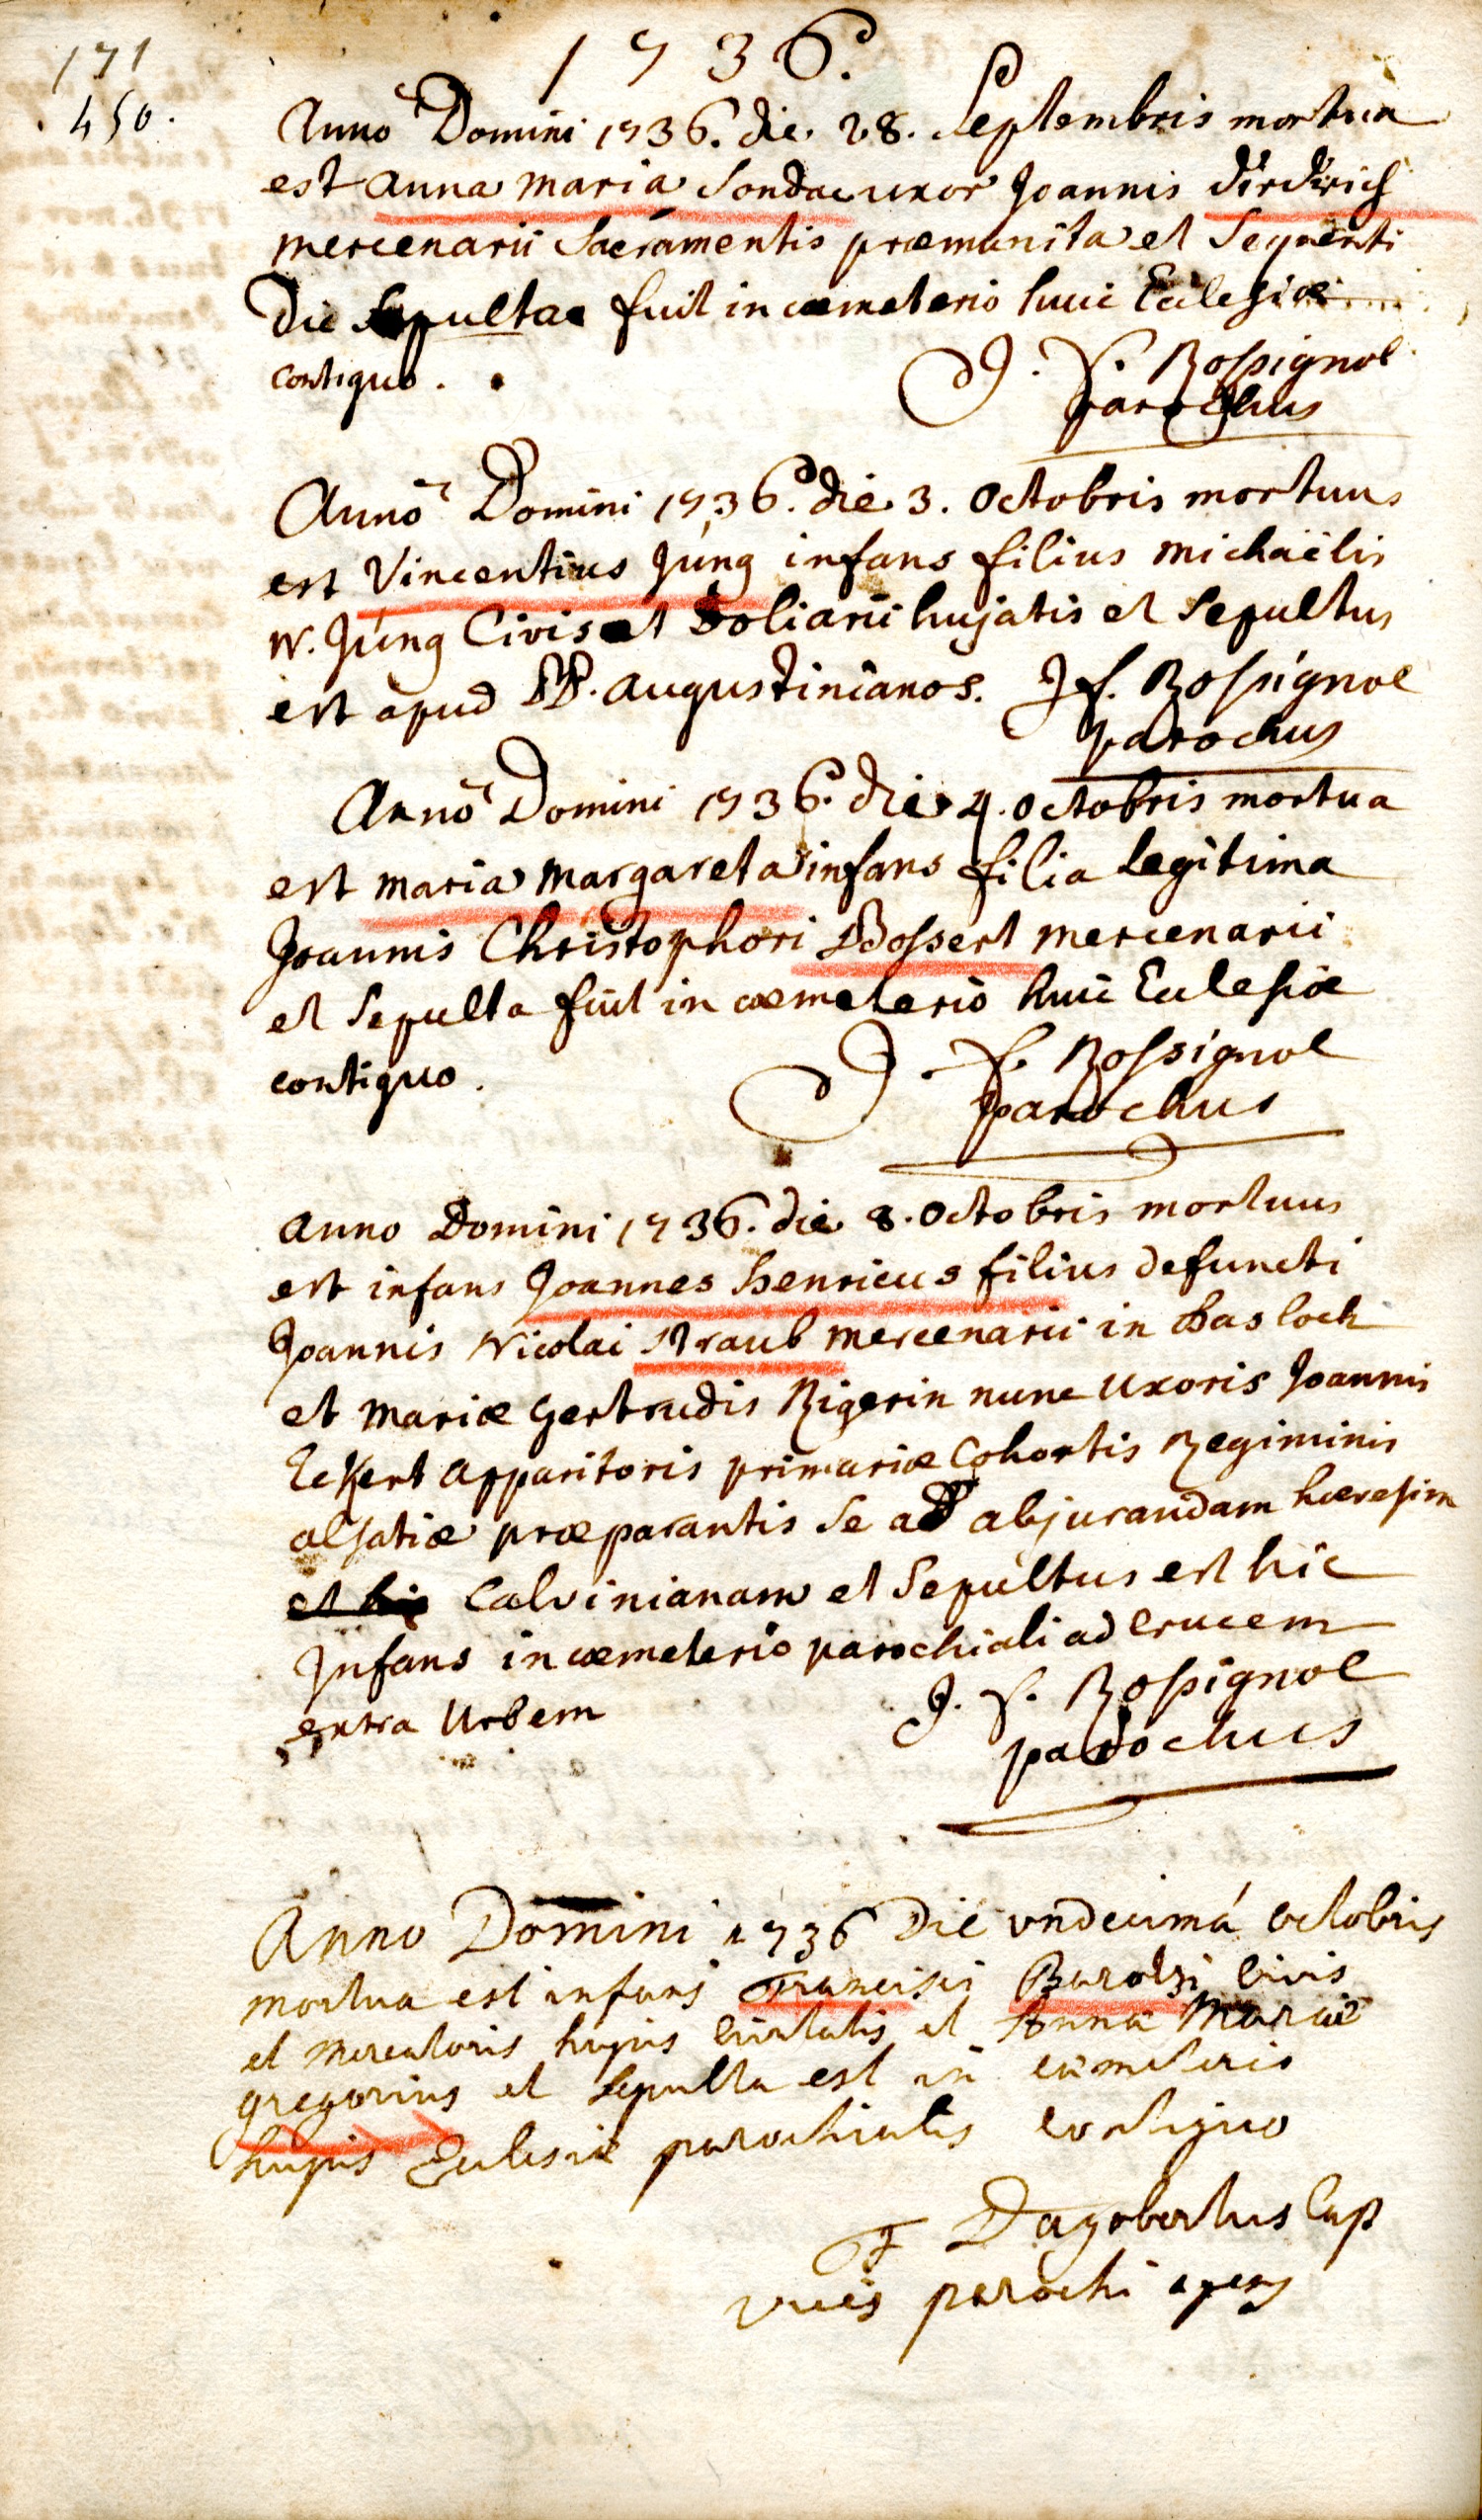 171
450.
1736.
Anno Domini 1736. die 28. Septembris mortua
est anna maria Sondac uxor Joannis dirdirich
mercenarii Sacramentis præmunita et Sequenti
die Sepulta fuit in cœmeterio huic Ecclesiæ
contiguo.
J. F. Rossignol
parochus
Anno Domini 1736. die 3. Octobris mortuus
est Vincentius Jung infans filius michaëlis
N. Jung Civis et Doliarii hujatis et Sepultus
est apud PP. augustinianos. J f. Rossignol
parochus
Anno Domini 1736. die 4. octobris mortua
est maria margareta infans filia Legitima
Joannis Christophori Bossert mercenarii
et Sepulta fuit in cœmeterio huic Ecclesiæ
contiguo.
J. F. Rossignol
parochus
anno Domini 1736. die 8. Octobris mortuus
est infans Joannes henricus filius defuncti
Joannis Nicolai Straub mercenarii in hasloch
et mariæ gertrudis Rigerin nunc Uxoris Joannis
Eckert apparitoris primariæ Cohortis Regiminis
alsatiæ præparantis Se ad abjurandam hæresim
et hic Calvinianam et Sepultus est hic
Infans in cœmeterio parochiali ad crucem
extra Urbem
J. F. Rossignol
parochus
Anno Domini 1736 Die undecimá octobris
mortua est infans Francisci Barotzi civis
et mercatoris hujus civitatis et Anna Mariæ
gregorius et sepulta est in cœmiterio
hujus Ecclesiæ parochialis contiguo
F Dagobertus Cap
vices parochi agens